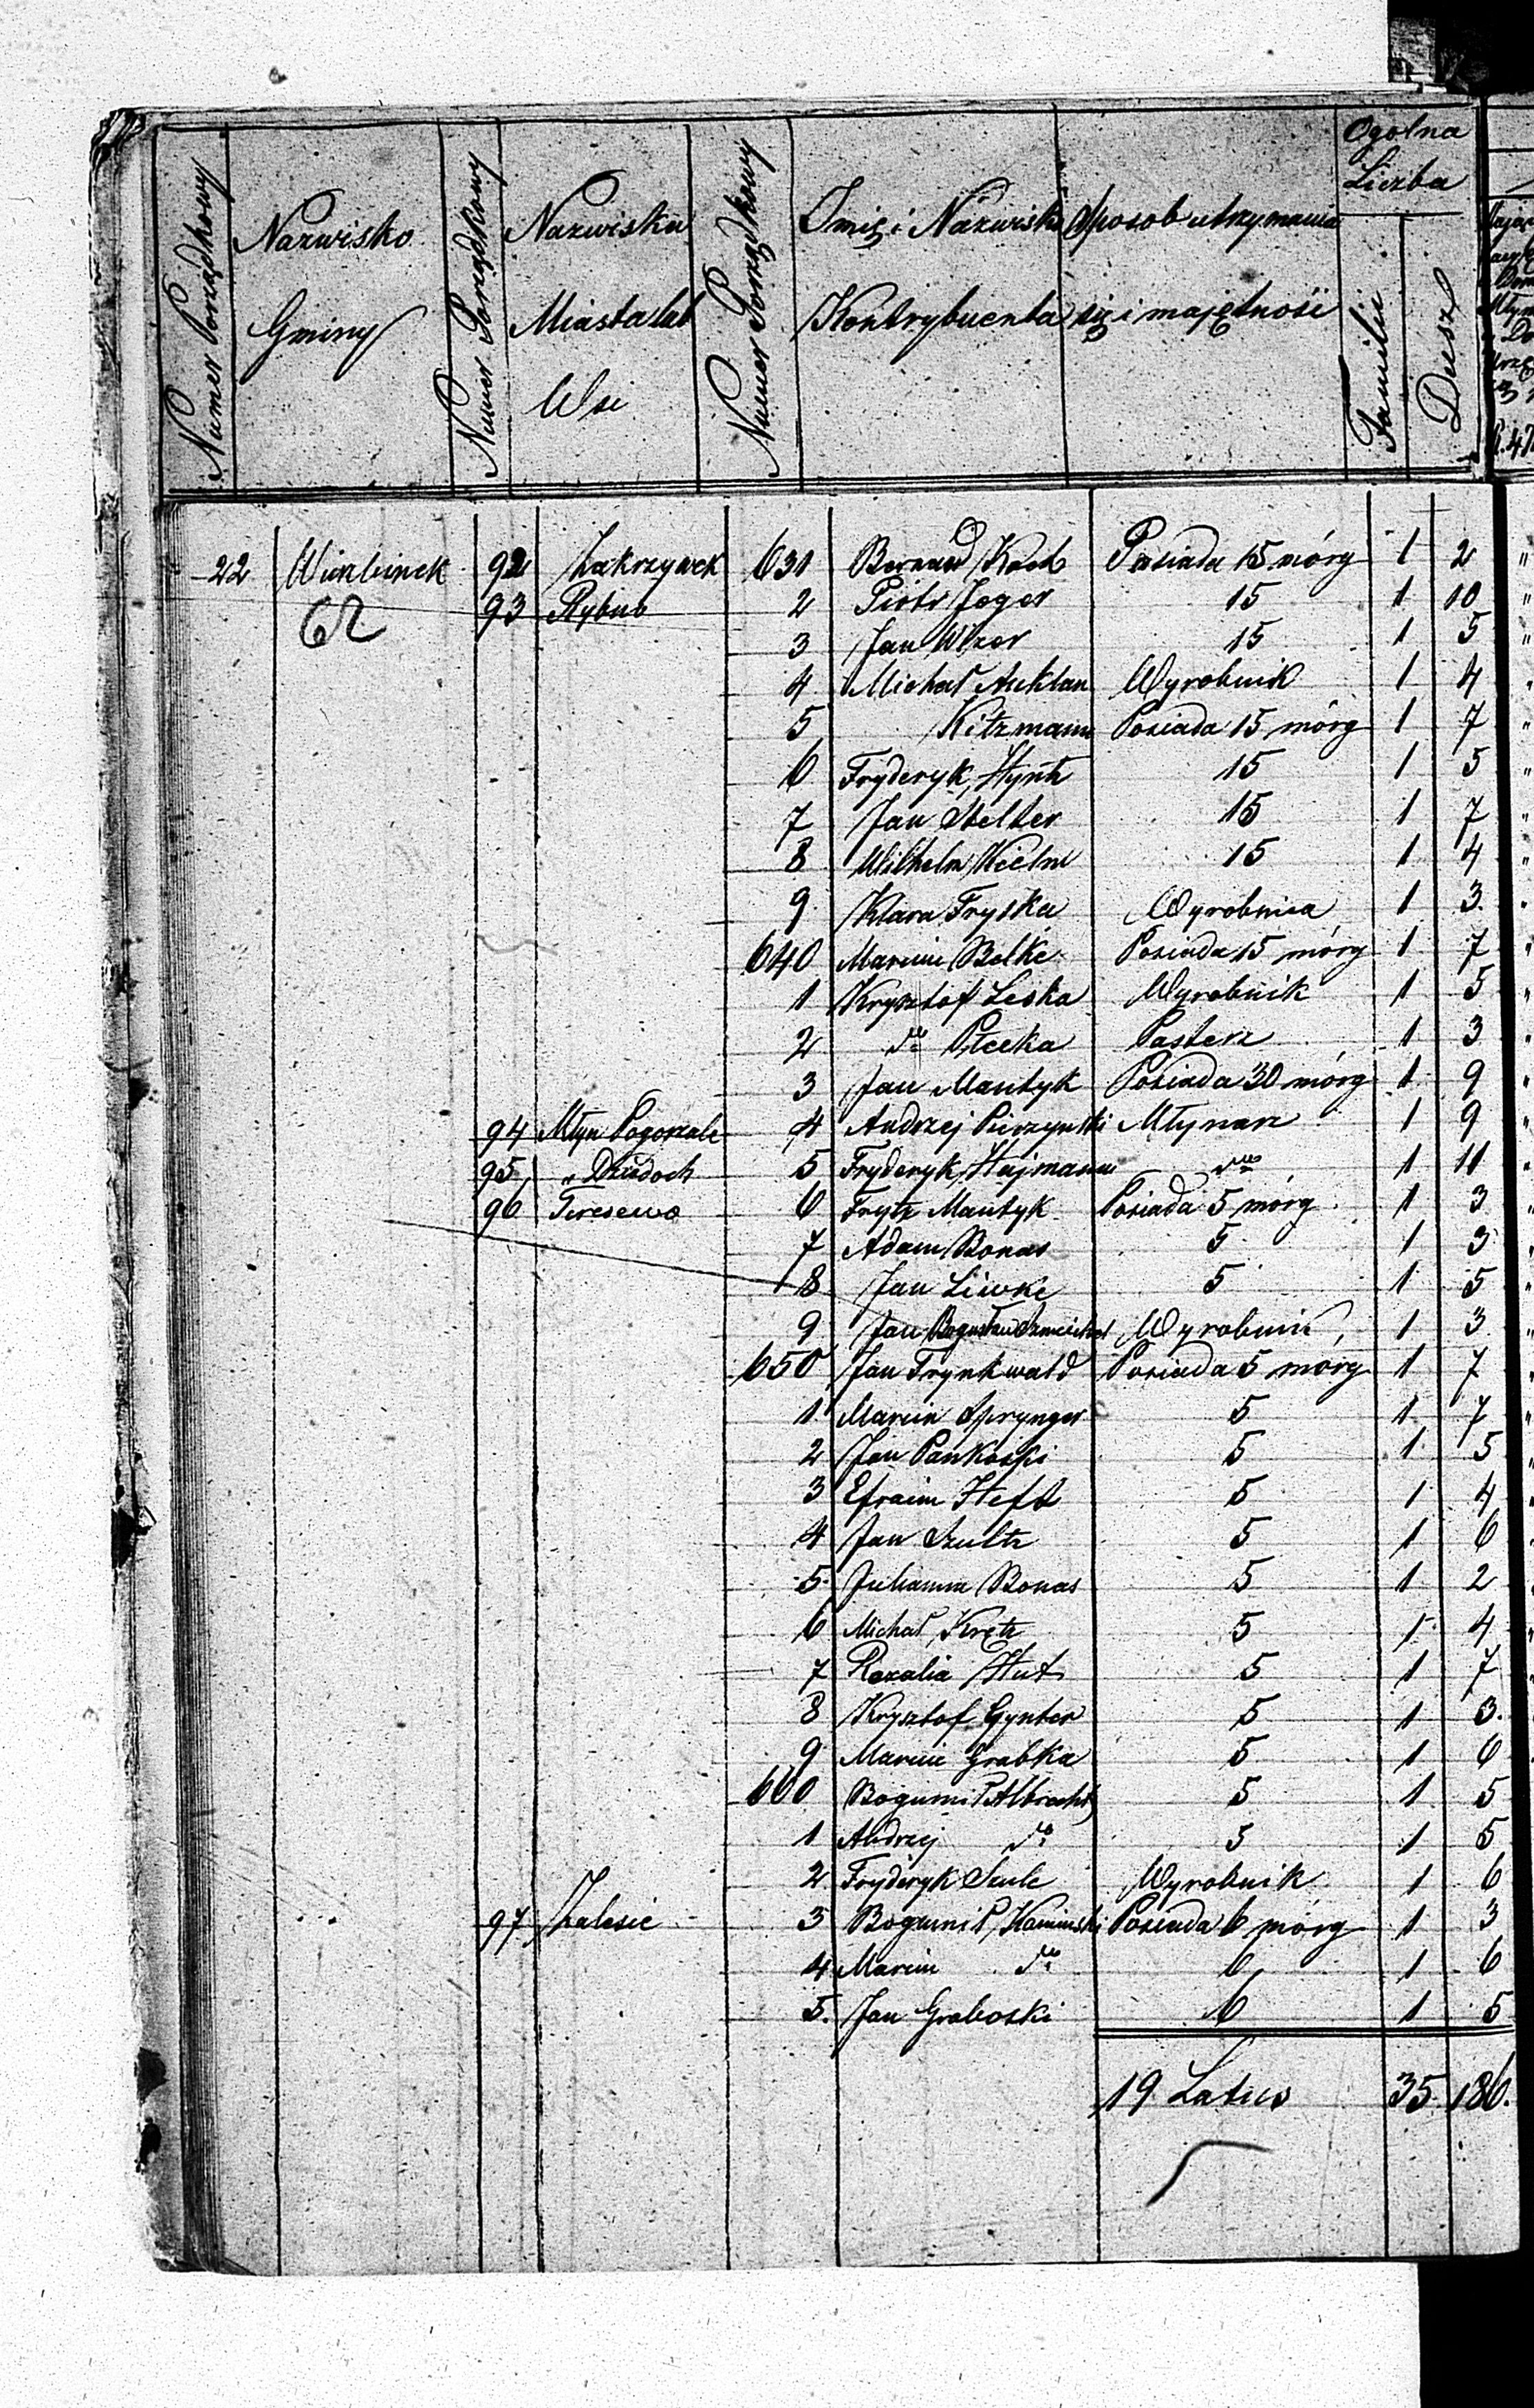 Numer Porządkowy
Nazwisko Gminy
Numer Porządkowy
Nazwisko Miasta lub Wsi
Numer Porządkowy
Imię i Nazwisko Kontrybuenta
Sposob utrzymania się i majętności
Ogolna Liczba
Familii
Dusz
22 Wierzbinek 92 Zakrzywek 631 Bernard Koch Posiada 15 mórg 1 2 "
62 93 Rybno 2 Piotr Jeger 15 1 10 "
3 Jan Wizer 15 1 5 "
4 Michał Wyrobnik 1 4 "
5 Kitzmann Posiada 15 mórg 1 7 "
6 Fryderyk Hyntz 15 1 5 "
7 Jan Stelter 15 1 7 "
8 Wilhelm 15 1 4 "
9 Klara Fryska Wyrobnica 1 3 "
640 Marcin Belke Posiada 15 mórg 1 7 "
1 Krysztof Leska Wyrobnik 1 5 "
2 do Pasterz 1 3 "
3 Jan Mantyk Posiada 30 mórg 1 9 "
94 Młyn Pogorzale 4 Andrzej Młynarz 1 9 "
95 " Dziadoch 5 Fryderyk Hajmann do 1 11 "
96 Teresewo 6 Frytz Mantyk Posiada 5 mórg 1 3 "
7 Adam Bonas 5 1 3 "
8 Jan Liwke 5 1 5 "
9 Jan Bogusław Wyrobnik 1 3 "
650 Jan Frynkwald Posiada 5 mórg 1 7 "
1 Marcin Sprynger 5 1 7 "
2 Jan Pankoski 5 1 5 "
3 Efraim Heft 5 1 4 "
4 Jan Szultz 5 1 6
5 Julianna Bonas 5 1 2
6 Michał Kretz 5 1 4 "
7 Rozalia Hut 5 1 7
8 Krysztof Gynter 5 1 3
9 Marcin Grabka 5 1 6
660 Bogumił Albrecht 5 1 5
1 Andrzej do 5 1 5
2 Fryderyk Szulc Wyrobnik 1 6
97 Zalesie 3 Bogumił Kaminski Posiada 6 mórg 1 3
4 Marcin do 6 1 6
5 Jan Graboski 6 1 5
19 Latus 35 186.